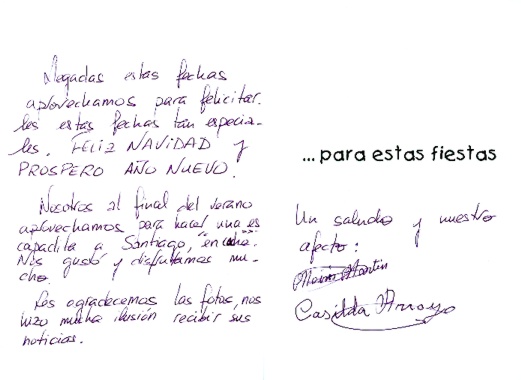 Llegadas estas fechas
aprovechamos para felicitar-
les estas fechas tan especia-
les. FELIZ NAVIDAD y
PROSPERO AÑO NUEVO.
Nosotros al final del verano
aprovechamos para hacer una es
capadita a Santiago, "en coche".
Nos gustó y disfrutamos mu-
cho.
Les agradecemos las fotos, nos
hizo mucha ilusión recibir sus
noticias.
... para estas fiestas
Un saludo y nuestro
afecto:
Martin
Casilda Arroyo